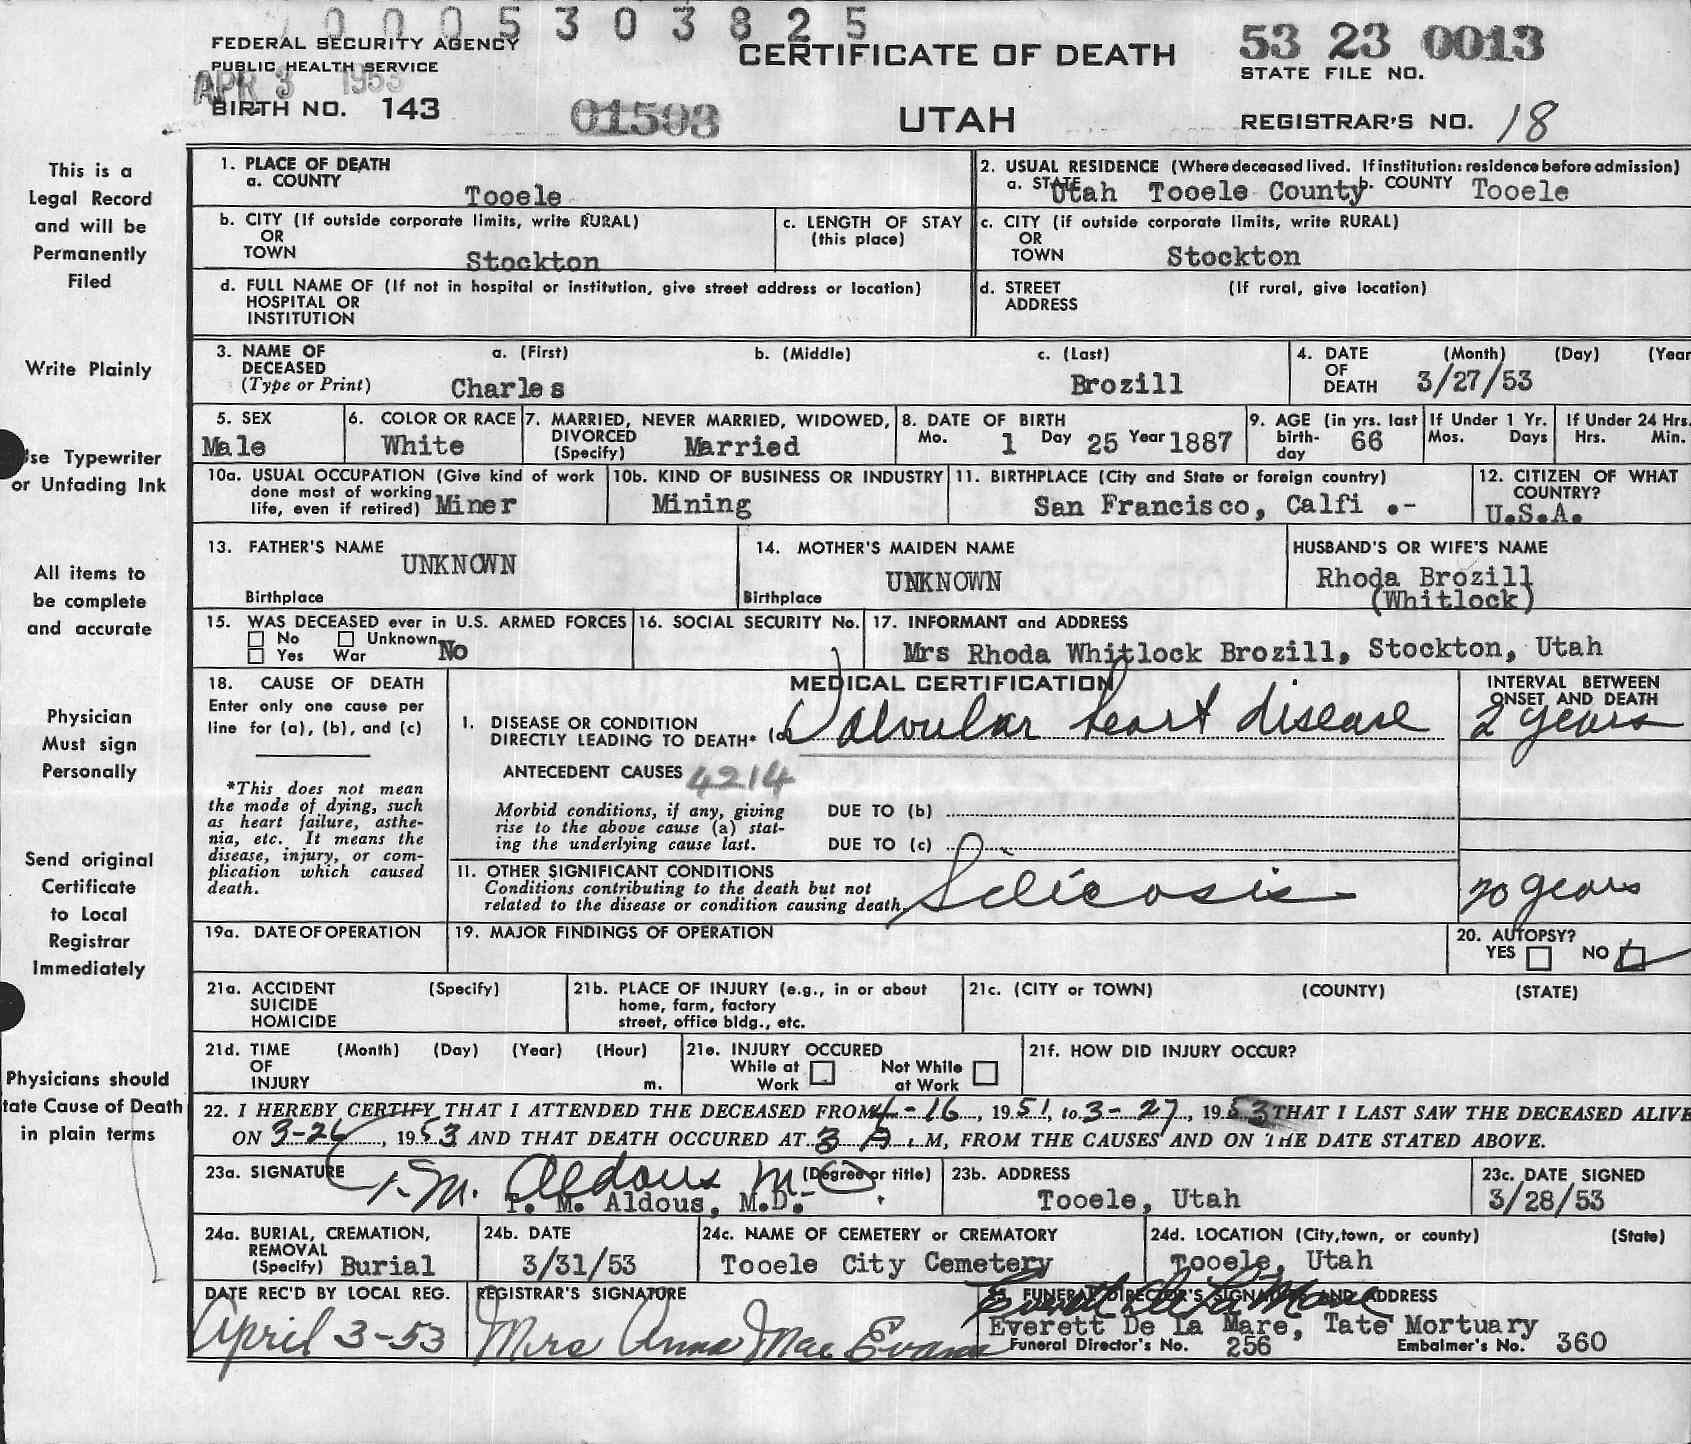 0005303825
FEDERAL SECURITY AGENCY
PUBLIC HEALTH SERVICE
APR 3 1953
BIRTH NO. 143
01503
CERTIFICATE OF DEATH
UTAH
53 23 0013
STATE FILE NO.
REGISTRAR'S NO. 18
This is a
Legal Record
and will be
Permanently
Filed
Write Plainly
Use Typewriter
or Unfading Ink
All items to
be complete
and accurate
Physician
Must sign
Personally
Send original
Certificate
to Local
Registrar
Immediately
Physicians should
tate Cause of Death
in plain terms
1. PLACE OF DEATH
a. COUNTY
Tooele
2. USUAL RESIDENCE (Where deceased lived. If institution: residence before admission)
a. STATE Utah Tooele County b. COUNTY Tooele
b. CITY (If outside corporate limits, write RURAL)
OR
TOWN
Stockton
c. LENGTH OF STAY
(this place)
c. CITY (if outside corporate limits, write RURAL)
OR
TOWN
Stockton
d. FULL NAME OF (If not in hospital or institution, give street address or location)
HOSPITAL OR
INSTITUTION
d. STREET (If rural, give location)
ADDRESS
3. NAME OF DECEASED
(Type or Print)
a. (First) b. (Middle) c. (Last)
Charles Brozill
4. DATE OF DEATH
(Month) (Day) (Year
3/27/53
5. SEX
Male
6. COLOR OR RACE
White
7. MARRIED, NEVER MARRIED, WIDOWED,
DIVORCED
(Specify) Married
8. DATE OF BIRTH
Mo. 1 Day 25 Year 1887
9. AGE (in yrs. last
birth-
day 66
If Under 1 Yr.
Mos. Days
If Under 24 Hrs.
Hrs. Min.
10a. USUAL OCCUPATION (Give kind of work
done most of working
life, even if retired) Miner
10b. KIND OF BUSINESS OR INDUSTRY
Mining
11. BIRTHPLACE (City and State or foreign country)
San Francisco, Calfi .-
12. CITIZEN OF WHAT
COUNTRY?
U.S.A.
13. FATHER'S NAME
UNKNOWN
Birthplace
14. MOTHER'S MAIDEN NAME
UNKNOWN
Birthplace
HUSBAND'S OR WIFE'S NAME
Rhoda Brozill
(Whitlock)
15. WAS DECEASED ever in U.S. ARMED FORCES
No Unknown
Yes War No
16. SOCIAL SECURITY No.
17. INFORMANT and ADDRESS
Mrs Rhoda Whitlock Brozill, Stockton, Utah
18. CAUSE OF DEATH
Enter only one cause per
line for (a), (b), and (c)
*This does not mean
the mode of dying, such
as heart failure, asthe-
nia, etc. It means the
disease, injury, or com-
plication which caused
death.
MEDICAL CERTIFICATION
INTERVAL BETWEEN
ONSET AND DEATH
I. DISEASE OR CONDITION
DIRECTLY LEADING TO DEATH* (a) Valvular heart disease 2 years
ANTECEDENT CAUSES 4214
Morbid conditions, if any, giving
rise to the above cause (a) stat-
ing the underlying cause last.
DUE TO (b)
DUE TO (c)
11. OTHER SIGNIFICANT CONDITIONS
Conditions contributing to the death but not
related to the disease or condition causing death.
Silicosis 20 years
19a. DATE OF OPERATION
19. MAJOR FINDINGS OF OPERATION
20. AUTOPSY?
YES NO
21a. ACCIDENT (Specify)
SUICIDE
HOMICIDE
21b. PLACE OF INJURY (e.g., in or about
home, farm, factory
street, office bldg., etc.
21c. (CITY or TOWN) (COUNTY) (STATE)
21d. TIME (Month) (Day) (Year) (Hour)
OF
INJURY m.
21e. INJURY OCCURED
While at Work Not While at Work
21f. HOW DID INJURY OCCUR?
22. I HEREBY CERTIFY THAT I ATTENDED THE DECEASED FROM 4-16, 1951, to 3-27, 1953 THAT I LAST SAW THE DECEASED ALIVE
ON 3-26, 1953 AND THAT DEATH OCCURED AT 3 A.M, FROM THE CAUSES AND ON THE DATE STATED ABOVE.
23a. SIGNATURE (Degree or title)
T. M. Aldous MD
T. M. Aldous, M.D.
23b. ADDRESS
Tooele, Utah
23c. DATE SIGNED
3/28/53
24a. BURIAL, CREMATION,
REMOVAL
(Specify) Burial
24b. DATE
3/31/53
24c. NAME OF CEMETERY or CREMATORY
Tooele City Cemetery
24d. LOCATION (City, town, or county) (State)
Tooele, Utah
DATE REC'D BY LOCAL REG.
April 3-53
REGISTRAR'S SIGNATURE
Mrs Anna Mae Evans
25. FUNERAL DIRECTOR'S SIGNATURE AND ADDRESS
Everett De La Mare
Everett De La Mare, Tate Mortuary
Funeral Director's No. 256 Embalmer's No. 360